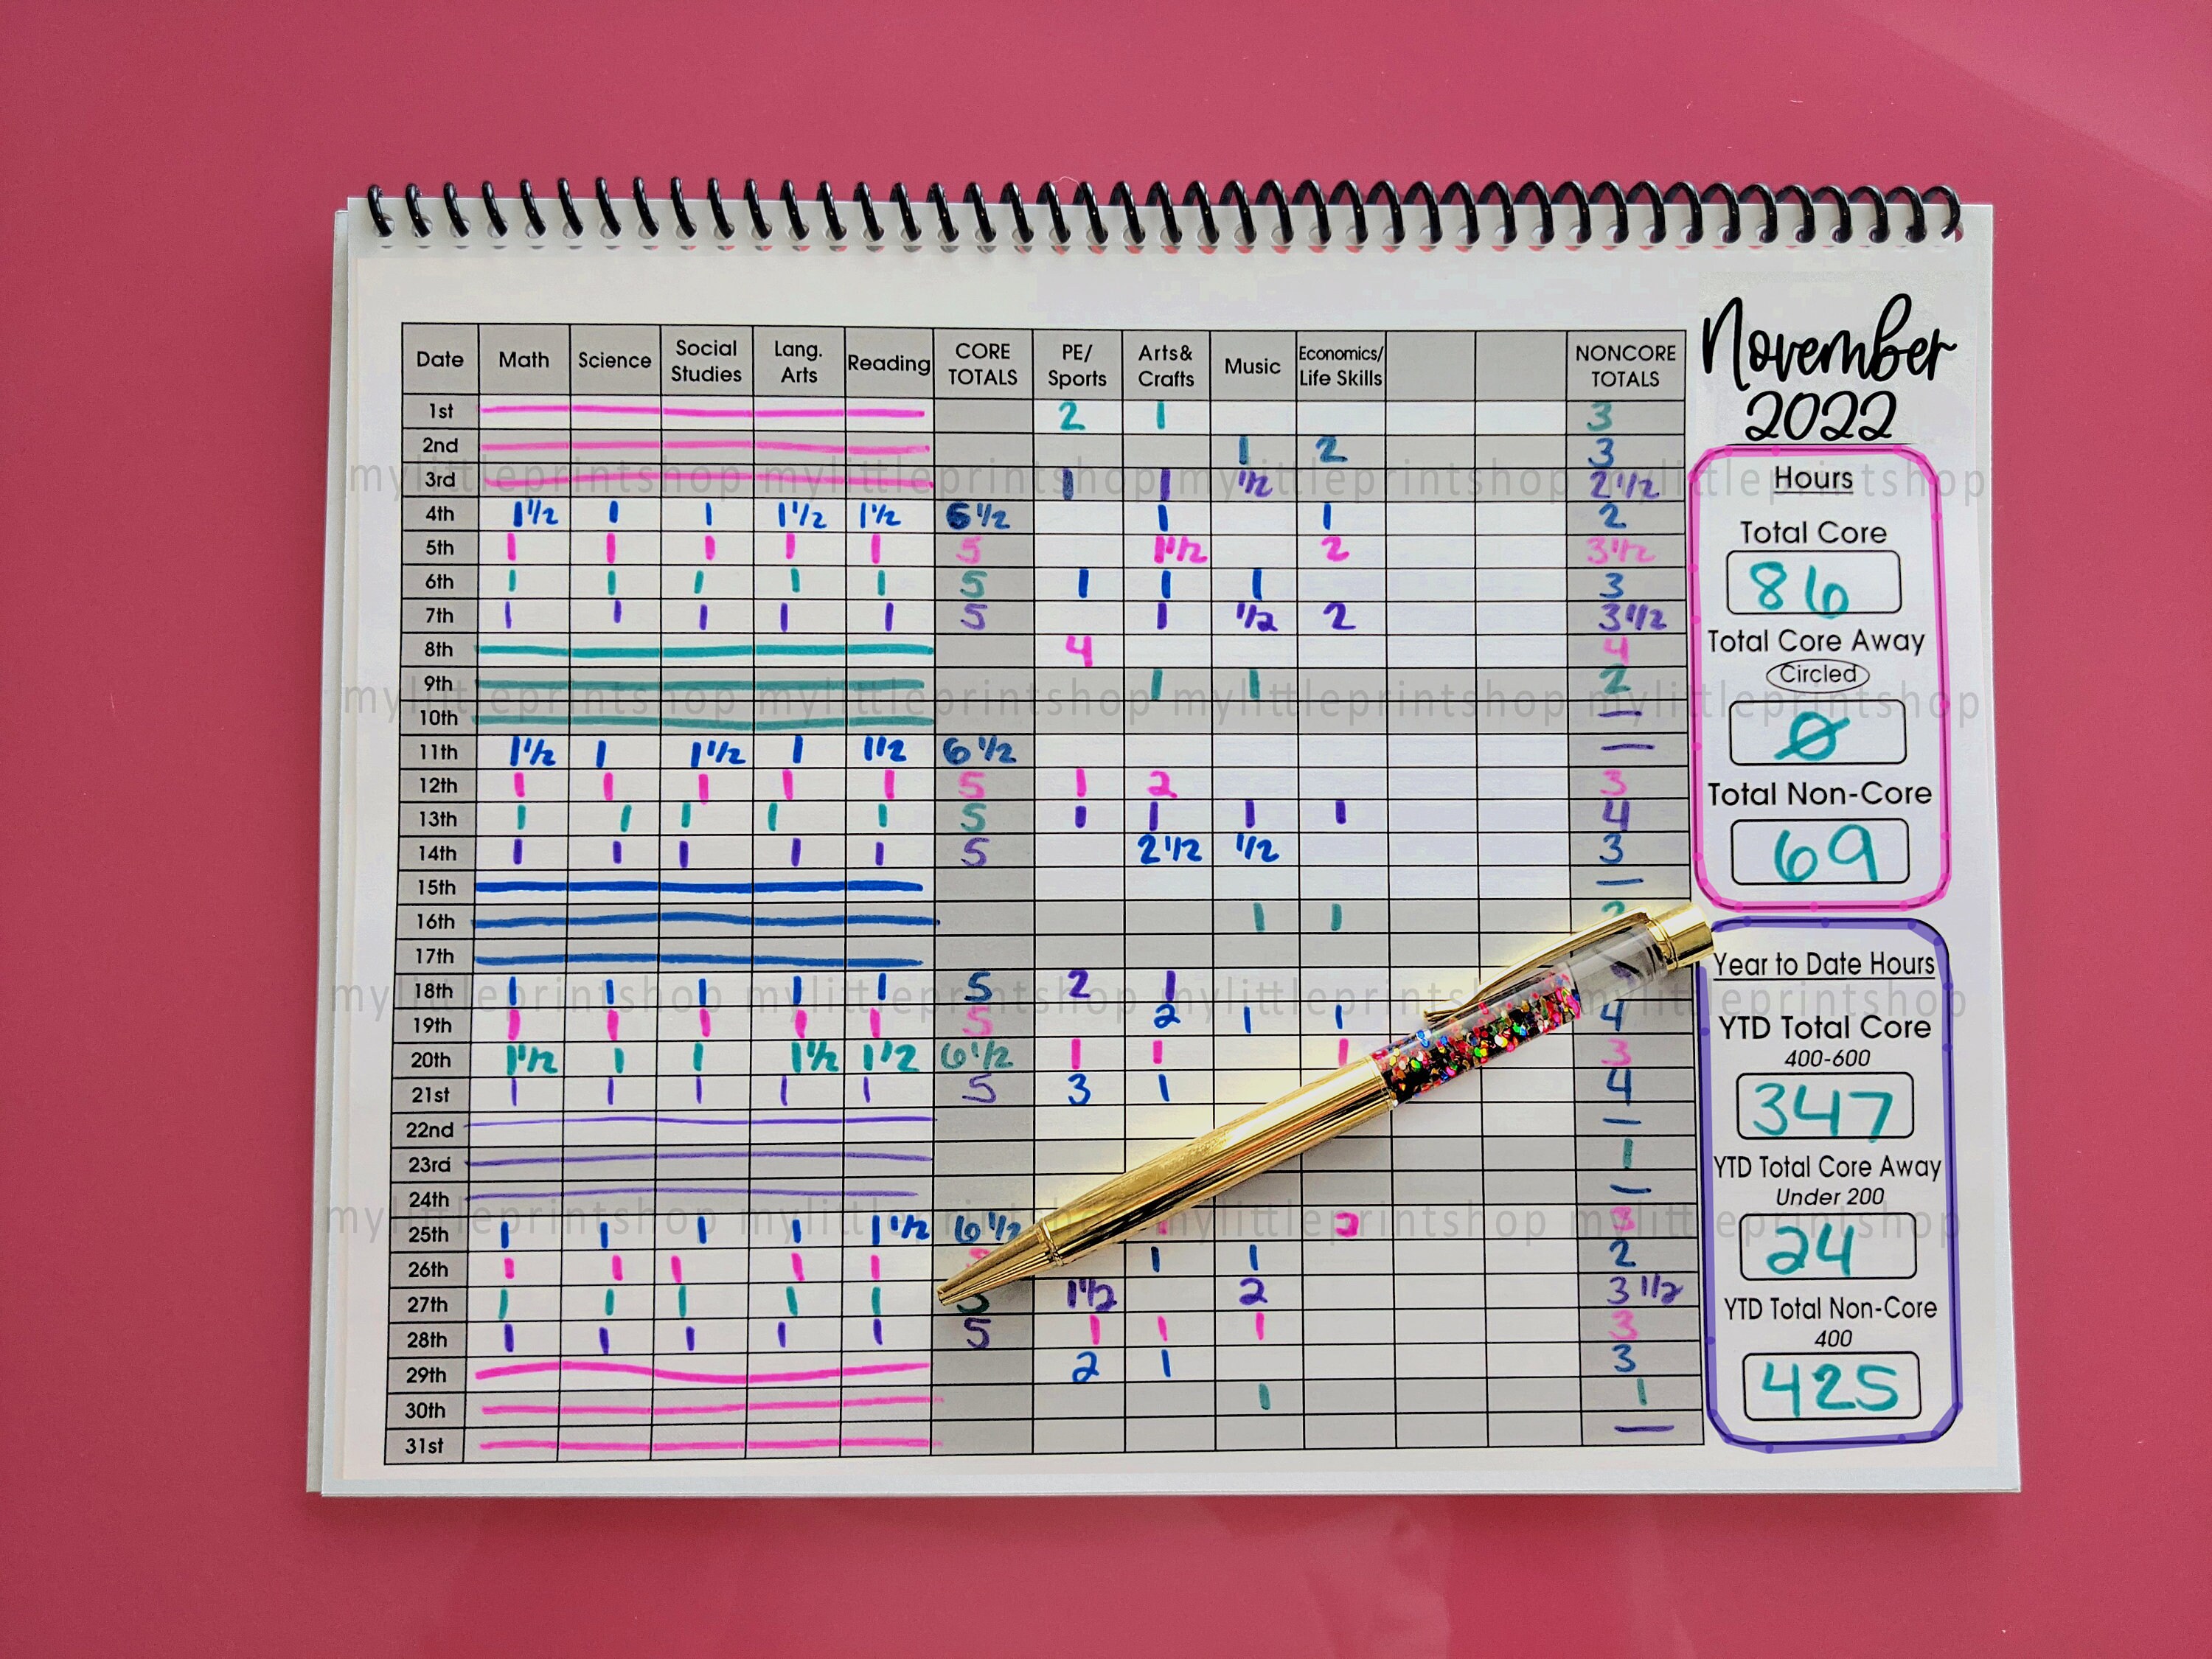 November
2022
Date Math Science Social Studies Lang. Arts Reading CORE TOTALS PE/ Sports Arts& Crafts Music Economics/ Life Skills NONCORE TOTALS
1st 2 1 3
2nd 1 2 3
3rd 1 1 1/2 2 1/2
4th 1 1/2 1 1 1 1/2 1 1/2 6 1/2 1 1 2
5th 1 1 1 1 1 5 1 1/2 2 3 1/2
6th 1 1 1 1 1 5 1 1 1 3
7th 1 1 1 1 1 5 1 1/2 2 3 1/2
8th 4 4
9th 1 1 2
10th —
11th 1 1/2 1 1 1/2 1 1 1/2 6 1/2 —
12th 1 1 1 1 1 5 1 2 3
13th 1 1 1 1 1 5 1 1 1 1 4
14th 1 1 1 1 1 5 2 1/2 1/2 3
15th —
16th 1 1
17th
18th 1 1 1 1 1 5 2 1
19th 1 1 1 1 1 5 2 1 1 4
20th 1 1/2 1 1 1 1/2 1 1/2 6 1/2 1 1 1 3
21st 1 1 1 1 1 5 3 1 4
22nd —
23rd 1
24th —
25th 1 1 1 1 1 1/2 6 1/2 1 2 3
26th 1 1 1 1 1 1 1 2
27th 1 1 1 1 1 5 1 1/2 2 3 1/2
28th 1 1 1 1 1 5 1 1 1 3
29th 2 1 3
30th 1 1
31st —
Hours
Total Core
86
Total Core Away
Circled
Ø
Total Non-Core
69
Year to Date Hours
YTD Total Core
400-600
347
YTD Total Core Away
Under 200
24
YTD Total Non-Core
400
425
mylittleprintshop mylittleprintshop mylittleprintshop mylittleprintshop
mylittleprintshop mylittleprintshop mylittleprintshop mylittleprintshop
mylittleprintshop mylittleprintshop mylittleprintshop mylittleprintshop
mylittleprintshop mylittleprintshop mylittleprintshop mylittleprintshop